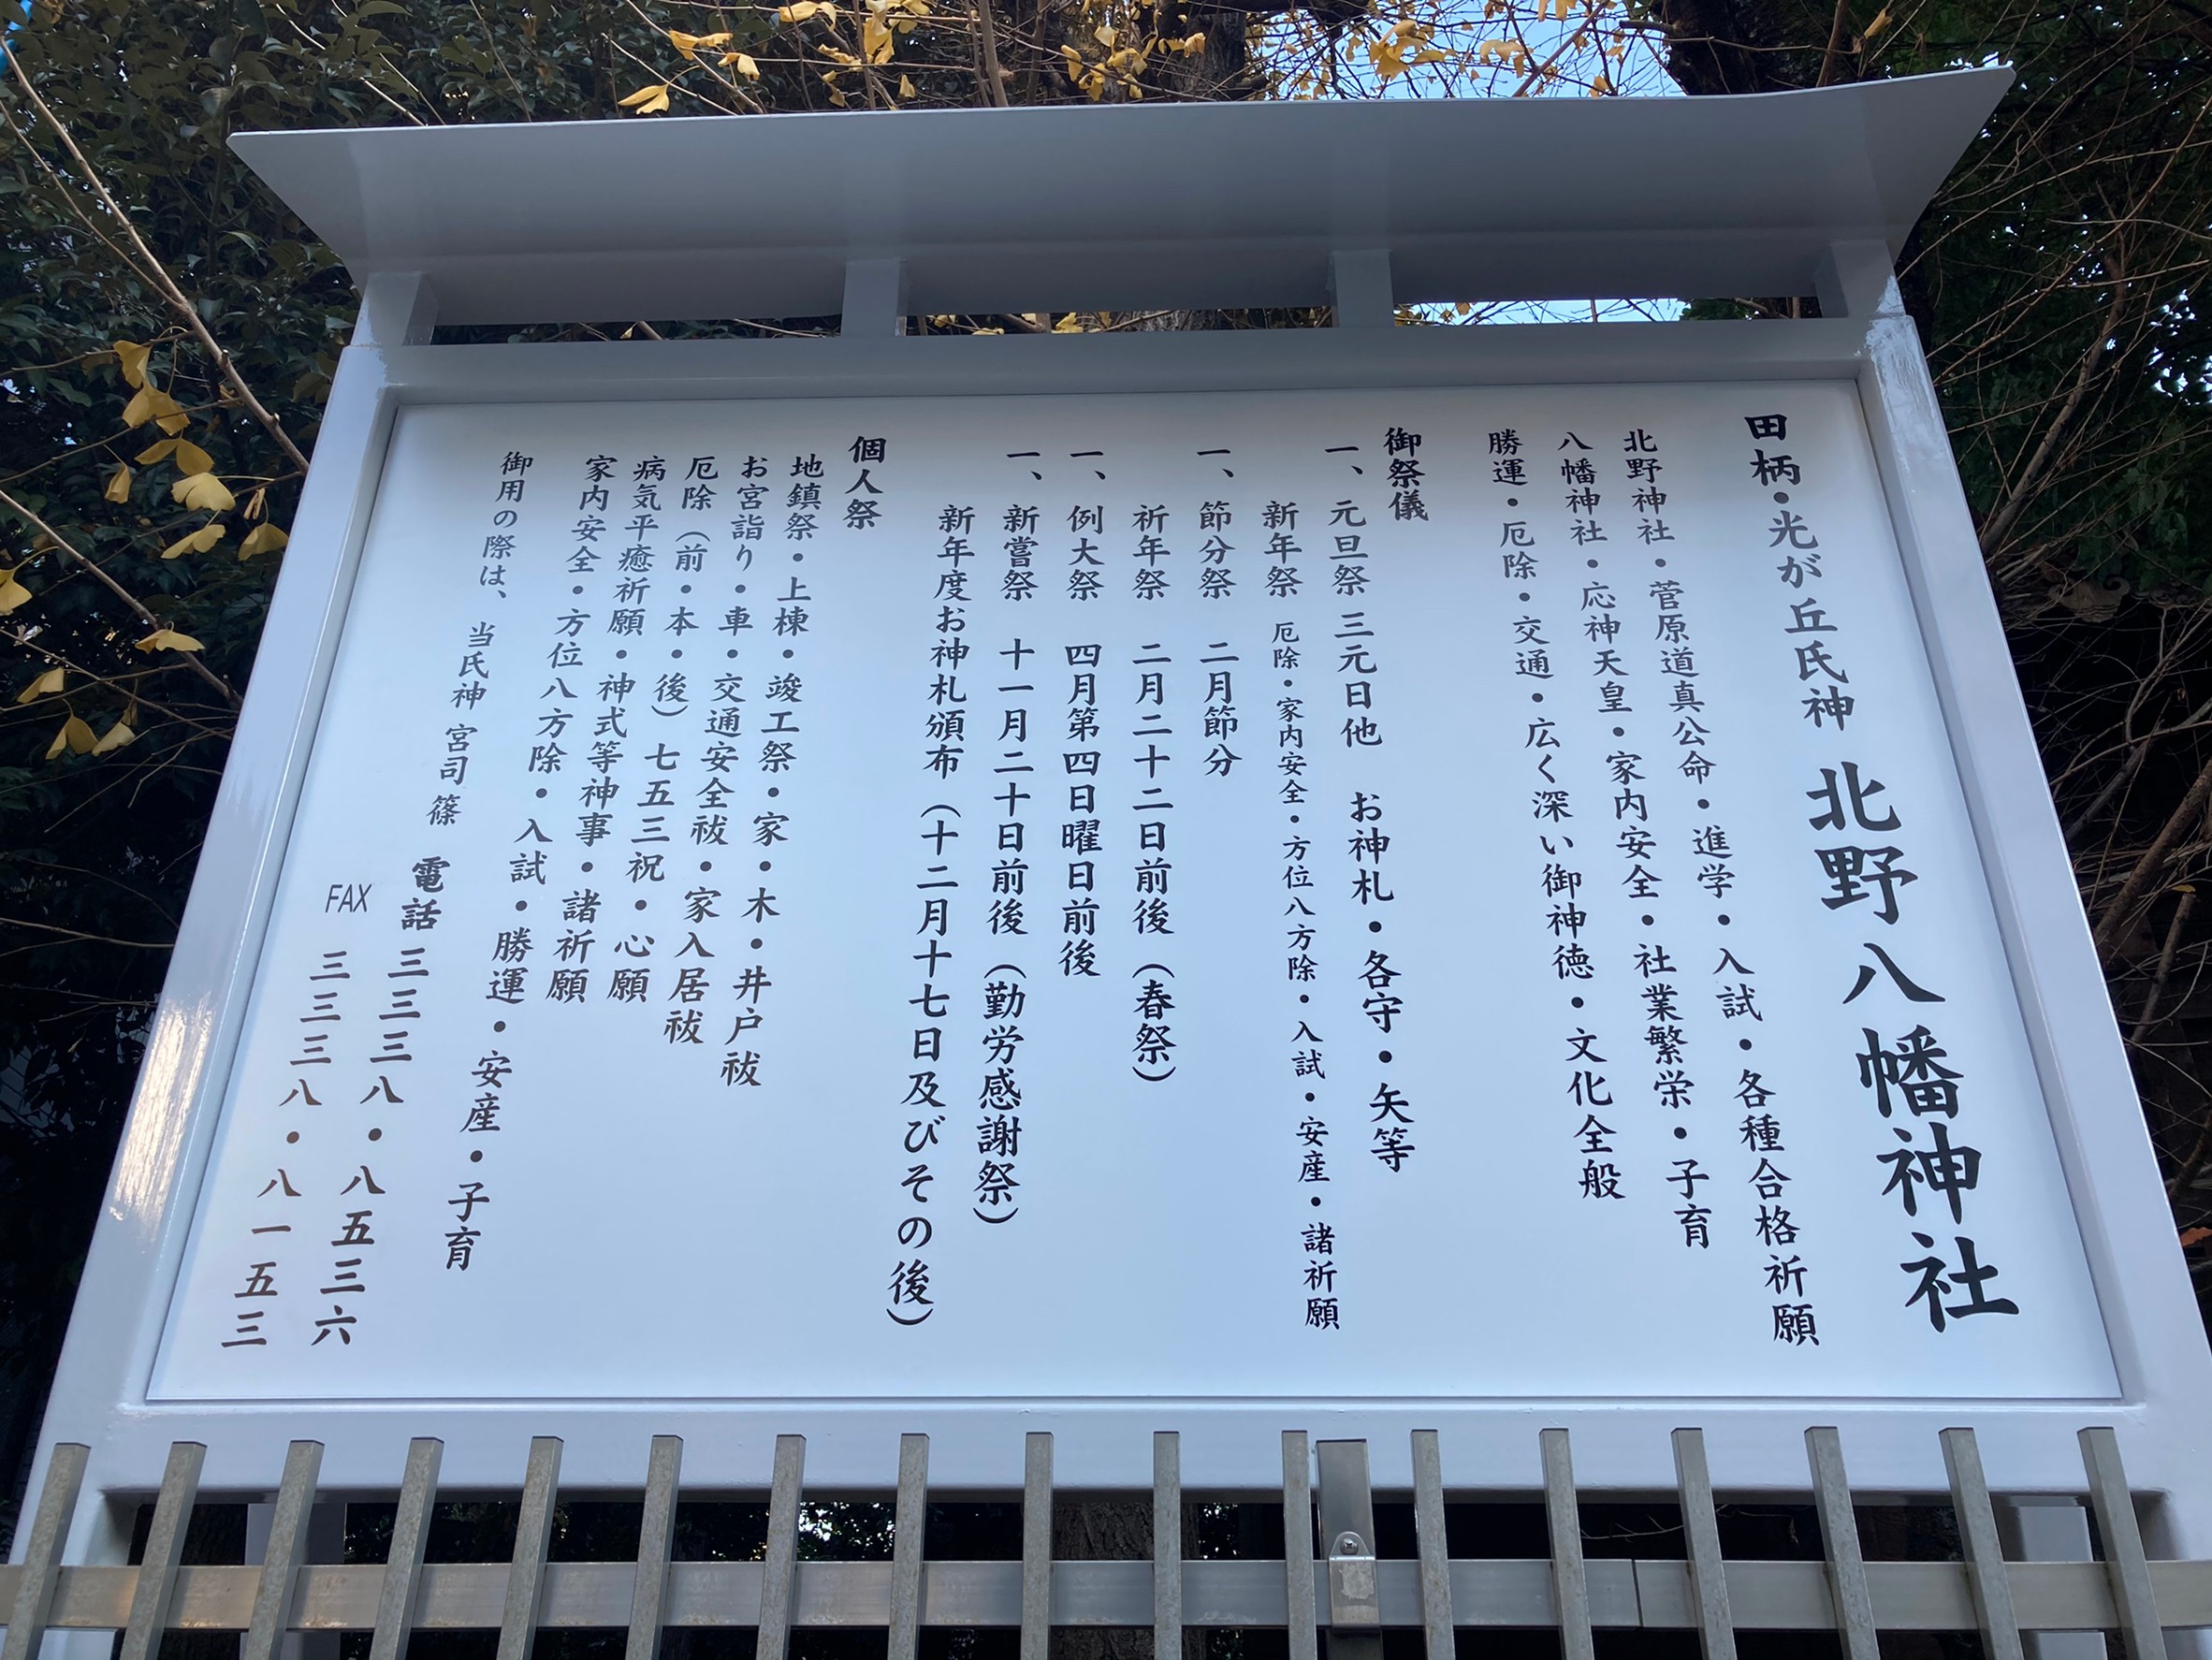 田柄・光が丘氏神 北野八幡神社
北野神社・菅原道真公命・進学・入試・各種合格祈願
八幡神社・応神天皇・家内安全・社業繁栄・子育
勝運・厄除・交通・広く深い御神徳・文化全般
御祭儀
一、元旦祭 三元日他 お神札・各守・矢等
新年祭 厄除・家内安全・方位八方除・入試・安産・諸祈願
一、節分祭 二月節分
祈年祭 二月二十二日前後（春祭）
一、例大祭 四月第四日曜日前後
一、新嘗祭 十一月二十日前後（勤労感謝祭）
新年度お神札頒布（十二月十七日及びその後）
個人祭
地鎮祭・上棟・竣工祭・家・木・井戸祓
お宮詣り・車・交通安全祓・家入居祓
厄除（前・本・後）七五三祝・心願
病気平癒祈願・神式等神事・諸祈願
家内安全・方位八方除・入試・勝運・安産・子育
御用の際は、当氏神 宮司 篠 電話 三三三八・八五三六
FAX 三三三八・八一五三